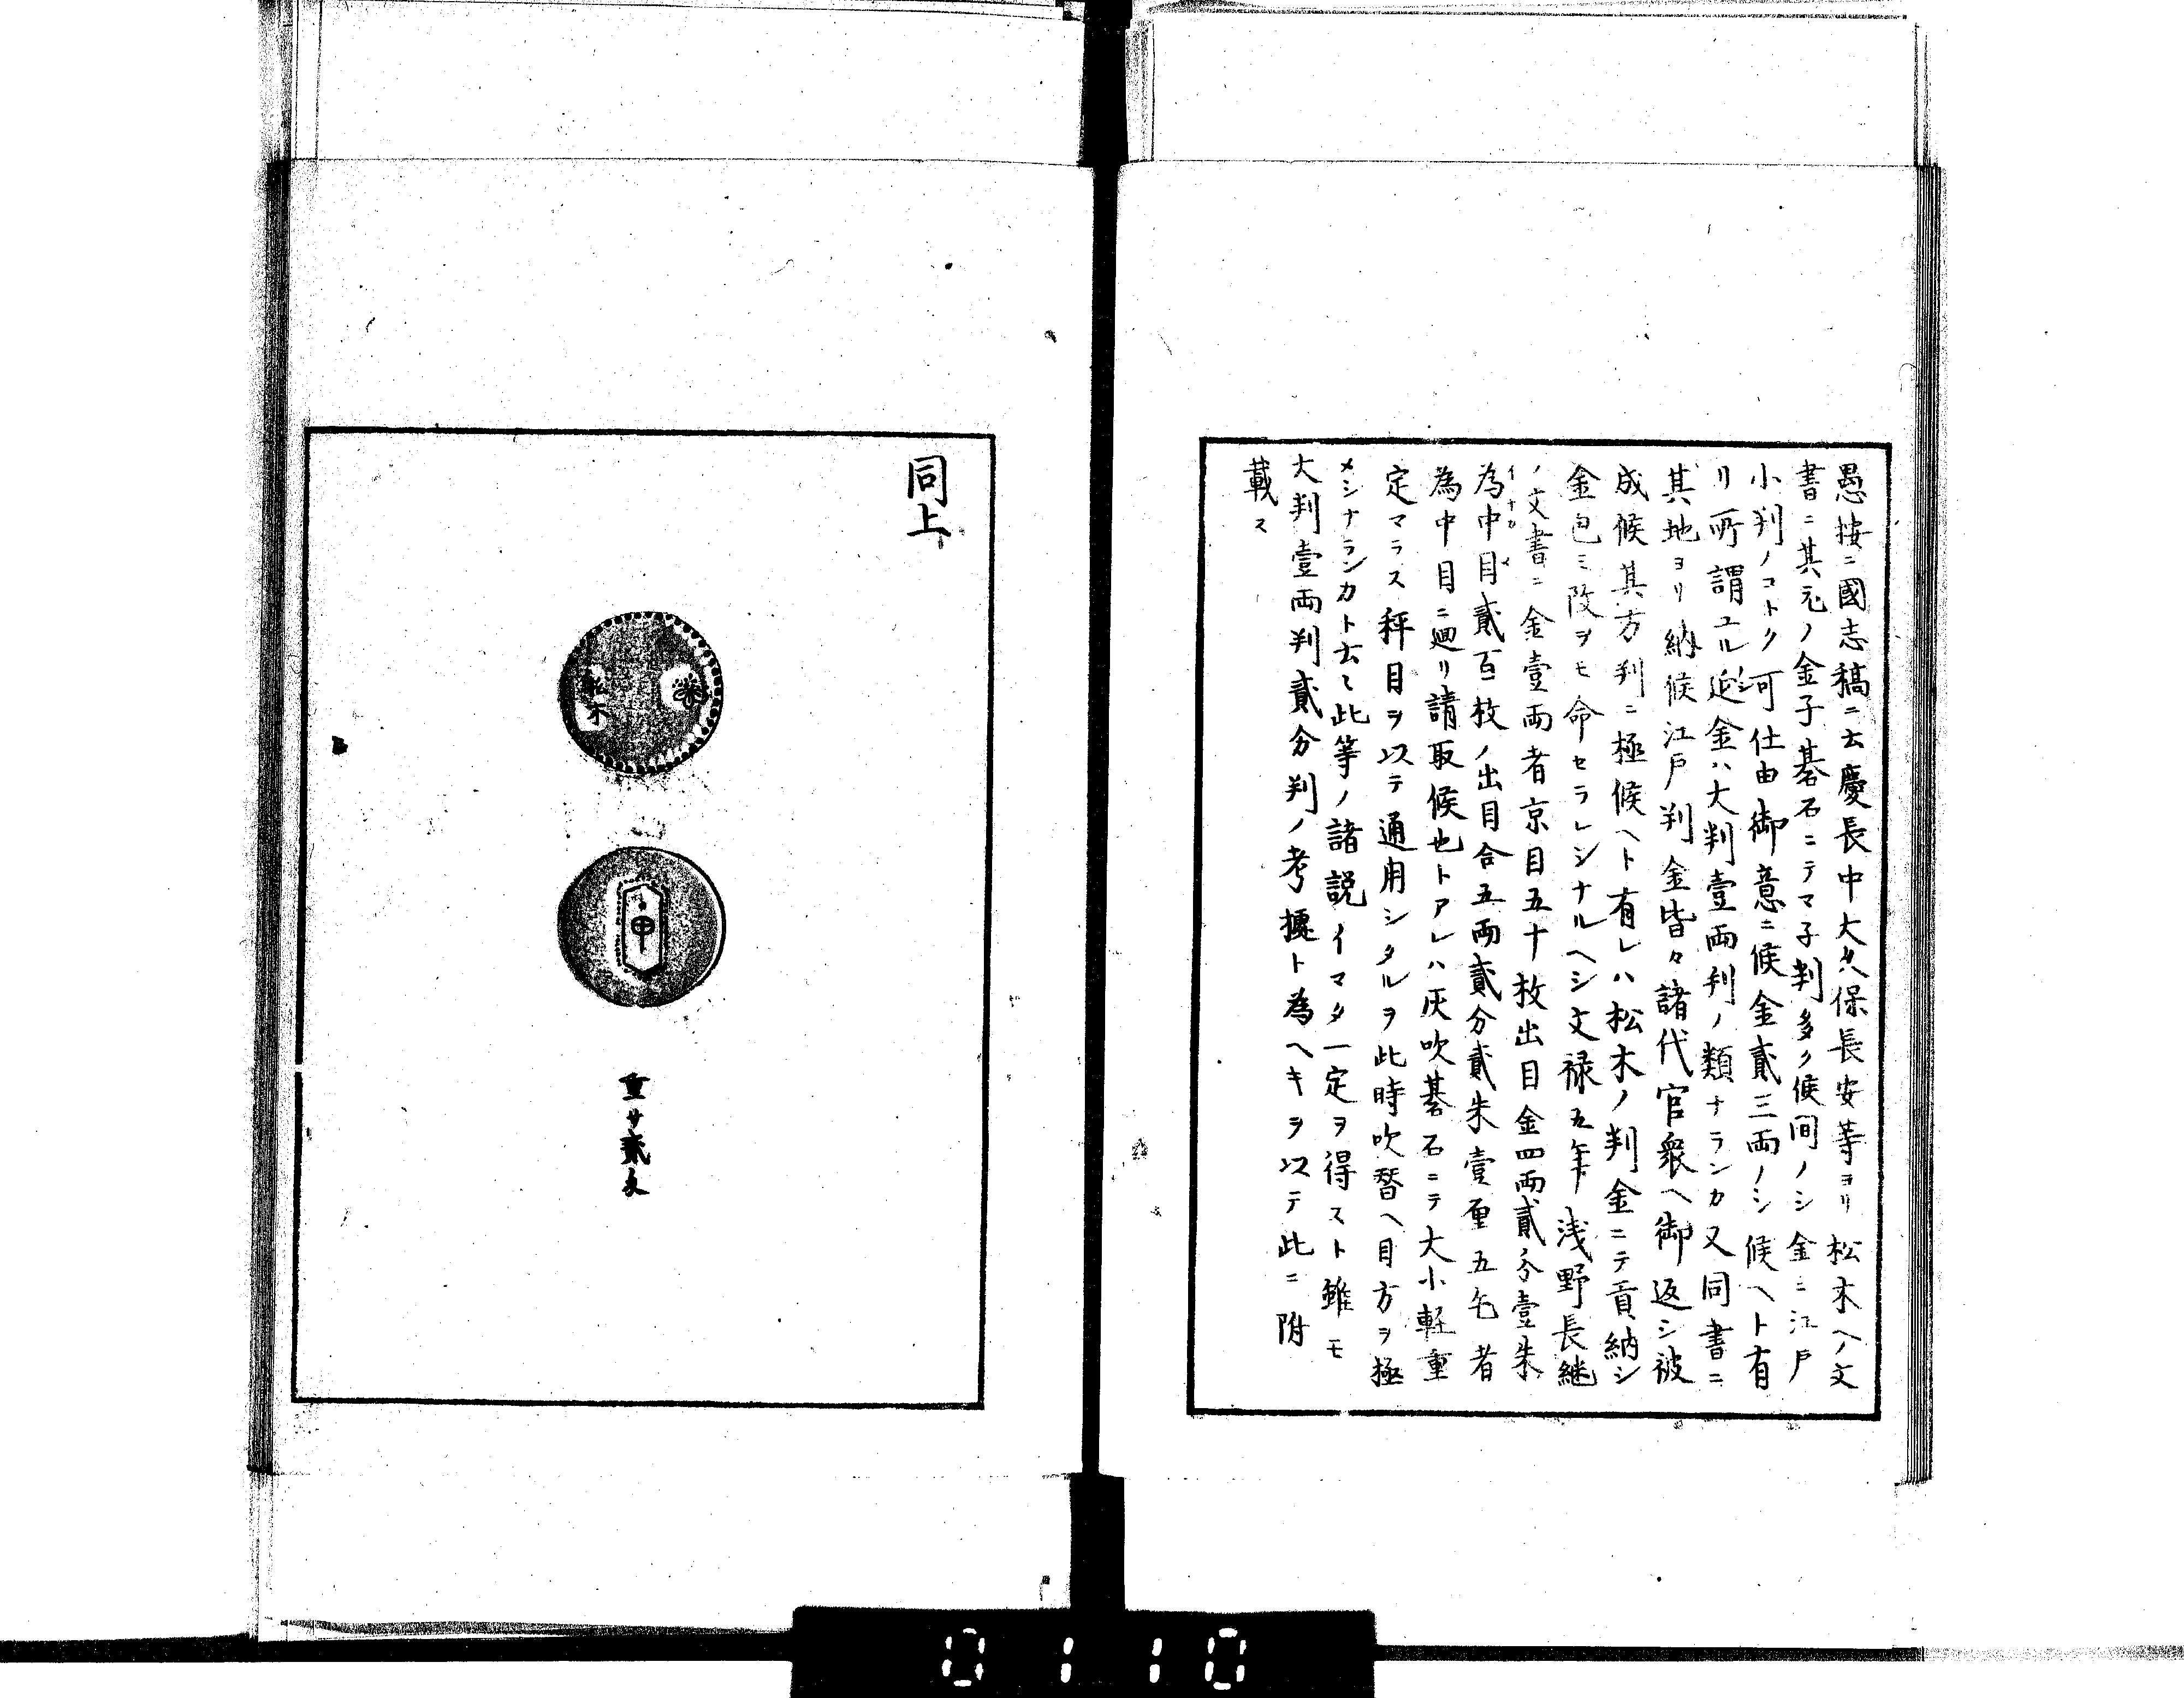 愚按ニ國志稿ニ云慶長中大久保長安等ヨリ松木ヘノ文
書ニ其元ノ金子碁石ニテマ子判多ク候間ノシ金ニ江戸
小判ノコトク可仕由御意ニ候金貳三両ノシ候ヘト有
リ所謂ユル延金ハ大判壹両判ノ類ナランカ又同書ニ
其地ヨリ納候江戸判金皆々諸代官衆ヘ御返シ被
成候其方判ニ極候ヘト有レハ松木ノ判金ニテ貢納シ
金包ミ改ヲモ命セラレシナルヘシ文禄五年浅野長継
ノ文書ニ金壹両者京目五十枚出目金四両貳分壹朱
為中目貳百枚ノ出目合五両貳分貳朱壹厘五毛者
為中目ニ廻リ請取候也トアレハ灰吹碁石ニテ大小軽重
定マラス秤目ヲ以テ通用シタルヲ此時吹替ヘ目方ヲ極
メシナランカト云々此等ノ諸説イマタ一定ヲ得スト雖モ
大判壹両判貳分判ノ考據ト為ヘキヲ以テ此ニ附
載ス
同上
松木
甲
重サ貳匁
0110